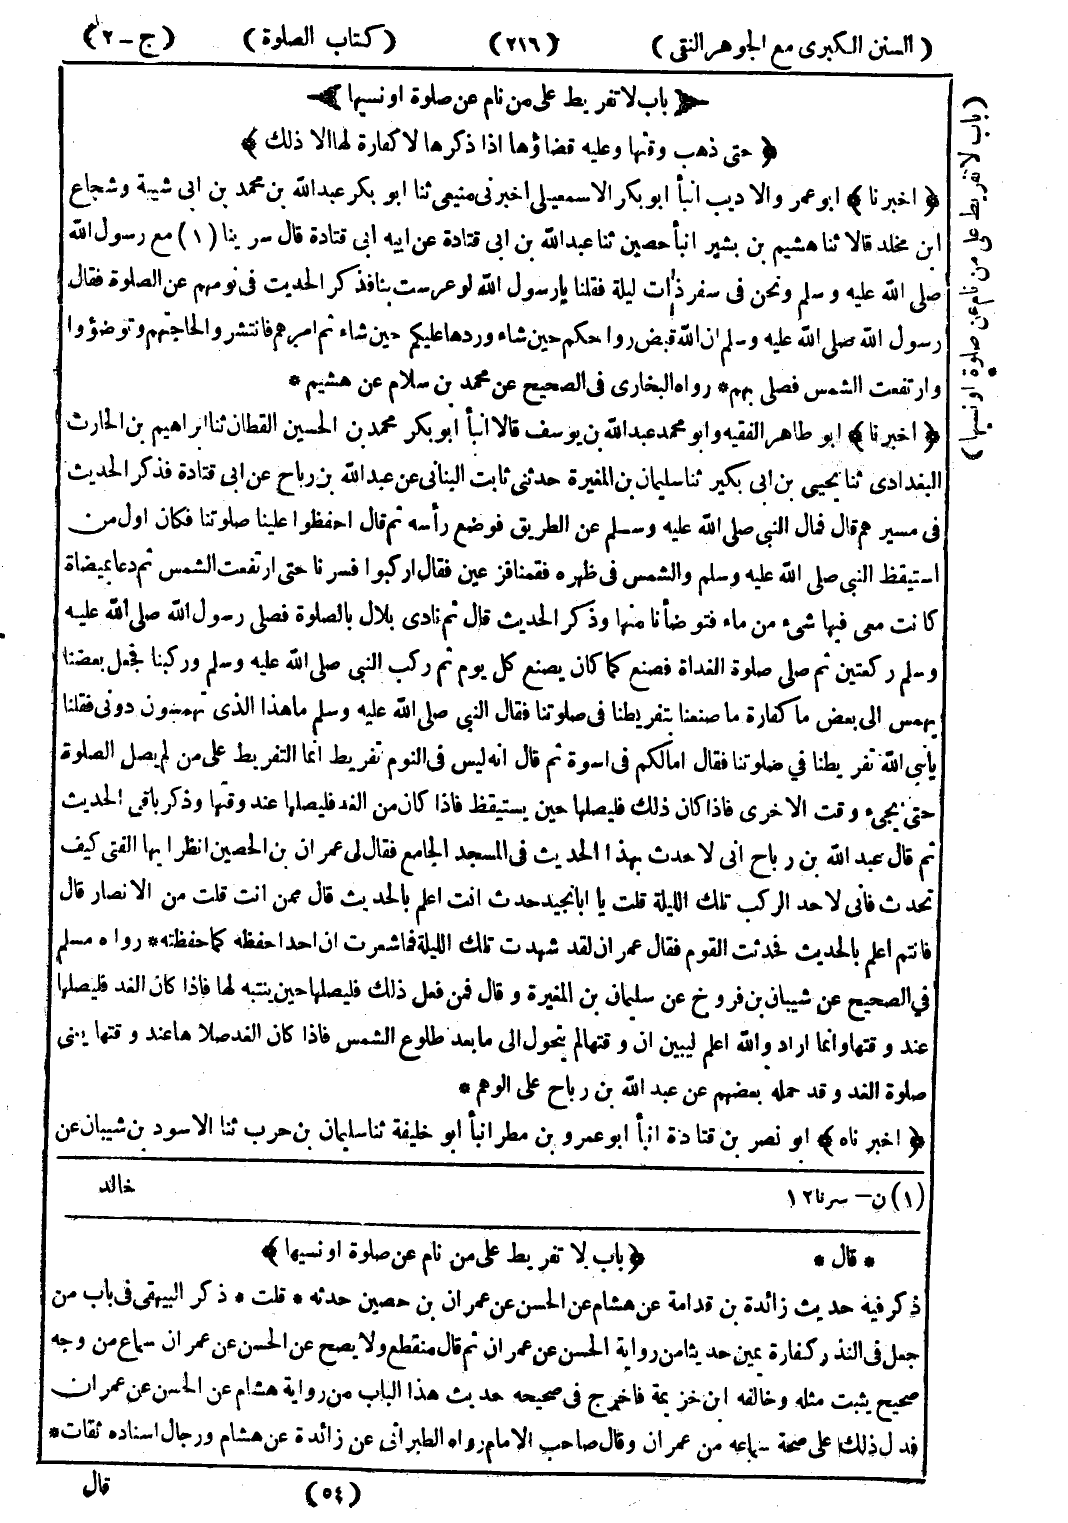 ( السنن الكبرى مع الجوهر النقى ) ( ٢١٦ ) ( كتاب الصلوة ) ( ج - ٢ )
باب لا تفريط على من نام عن صلوة او نسيها
﴿ حتى ذهب وقتها وعليه قضاؤها اذا ذكرها لا كفارة لها الا ذلك ﴾
( باب لا تفريط على من نام عن صلوة او نسيها )
﴿ اخبرنا ﴾ ابو عمرو الاديب انبأ ابو بكر الاسمعيلى اخبرنى منيعى ثنا ابو بكر عبدالله بن محمد بن ابى شيبة وشجاع
ابن مخلد قالا ثنا هشيم بن بشير انبأ حصين ثنا عبدالله بن ابى قتادة عن ابيه ابى قتادة قال سرينا (١) مع رسول الله
صلى الله عليه وسلم ونحن فى سفر ذات ليلة فقلنا يارسول الله لو عرست بنا فذكر الحديث فى نومهم عن الصلوة فقال
رسول الله صلى الله عليه وسلم ان الله قبض روا حكم حين شاء وردها عليكم حين شاء ثم امرهم فانتشروا لحاجتهم وتوضؤوا
وارتفعت الشمس فصلى بهم * رواه البخارى فى الصحيح عن محمد بن سلام عن هشيم *
﴿ اخبرنا ﴾ ابو طاهر الفقيه وابو محمد عبدالله بن يوسف قالا انبأ ابوبكر محمد بن الحسين القطان ثنا ابراهيم بن الحارث
البغدادى ثنا يحيى بن ابى بكير ثنا سليمان بن المغيرة حدثنى ثابت البنانى عن عبدالله بن رباح عن ابى قتادة فذكر الحديث
فى مسيرهم قال فمال النبى صلى الله عليه وسلم عن الطريق فوضع رأسه ثم قال احفظوا علينا صلوتنا فكان اول من
استيقظ النبى صلى الله عليه وسلم والشمس فى ظهره فقمنا فزعين فقال اركبوا فسرنا حتى ارتفعت الشمس ثم دعا بميضاة
كانت معى فيها شىء من ماء فتوضأنا منها وذكر الحديث قال ثم نادى بلال بالصلوة فصلى رسول الله صلى الله عليه
وسلم ركعتين ثم صلى صلوة الغداة فصنع كما كان يصنع كل يوم ثم ركب النبى صلى الله عليه وسلم وركبنا فجعل بعضنا
يهمس الى بعض ما كفارة ما صنعنا بتفريطنا فى صلوتنا فقال النبى صلى الله عليه وسلم ما هذا الذى تهمسون دونى فقلنا
يا نبى الله تفريطنا فى صلوتنا فقال امالكم فى اسوة ثم قال انه ليس فى النوم تفريط انما التفريط على من لم يصل الصلوة
حتى يجىء وقت الاخرى فاذا كان ذلك فليصلها حين يستيقظ فاذا كان من الغد فليصلها عند وقتها وذكر باقى الحديث
ثم قال عبد الله بن رباح انى لاحدث بهذا الحديث فى المسجد الجامع فقال لى عمران بن الحصين انظر ايها الفتى كيف
تحدث فانى لاحد الركب تلك الليلة قلت يا ابا نجيد حدث انت اعلم بالحديث قال ممن انت قلت من الانصار قال
فانتم اعلم بالحديث فحدثت القوم فقال عمران لقد شهدت تلك الليلة فما شعرت ان احدا حفظه كما حفظته * رواه مسلم
فى الصحيح عن شيبان بن فروخ عن سليمان بن المغيرة وقال فمن فعل ذلك فليصلها حين ينتبه لها فاذا كان الغد فليصلها
عند وقتها وانما اراد والله اعلم ليبين ان وقتها لم يتحول الى ما بعد طلوع الشمس فاذا كان الغد صلاها عند وقتها يعنى
صلوة الغد وقد حمله بعضهم عن عبد الله بن رباح على الوهم *
﴿ اخبرناه ﴾ ابو نصر بن قتادة انبأ ابو عمرو بن مطر انبأ ابو خليفة ثنا سليمان بن حرب ثنا الاسود بن شيبان عن
خالد
(١) ن - سرنا ١٢
* قال * ﴿ باب لا تفريط على من نام عن صلوة او نسيها ﴾
ذكر فيه حديث زائدة بن قدامة عن هشام عن الحسن عن عمران بن حصين حدثه * قلت * ذكر البيهقى فى باب من
جعل فى النذر كفارة يمين حديثا من رواية الحسن عن عمران ثم قال منقطع ولا يصح عن الحسن عن عمران سماع من وجه
صحيح يثبت مثله وخالفه ابن خزيمة فاخرج فى صحيحه حديث هذا الباب من رواية هشام عن الحسن عن عمران
فدل ذلك على صحة سماعه من عمران وقال صاحب الامام رواه الطبرانى عن زائدة عن هشام ورجال اسناده ثقات *
( ٥٤ ) قال